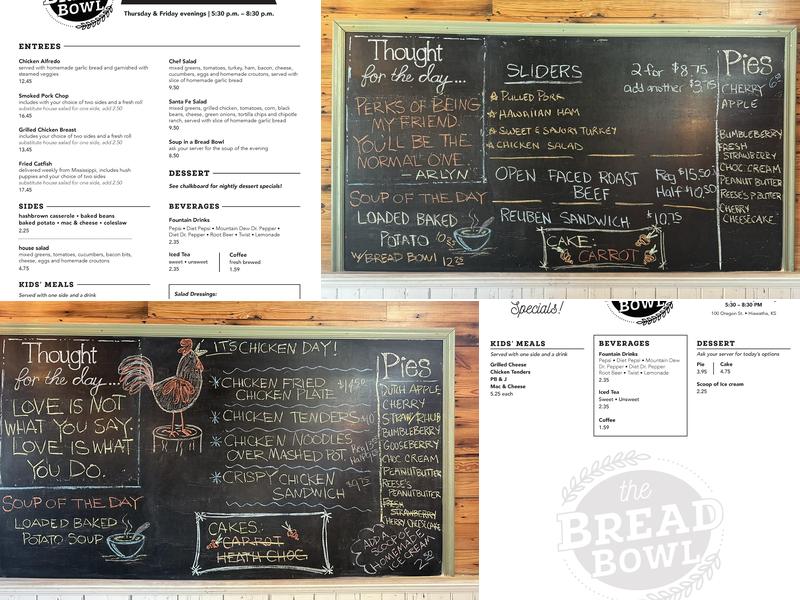 BOWL
Thursday & Friday evenings | 5:30 p.m. – 8:30 p.m.
ENTREES
Chicken Alfredo
served with homemade garlic bread and garnished with
steamed veggies
12.45
Smoked Pork Chop
includes with your choice of two sides and a fresh roll
substitute house salad for one side, add 2.50
16.45
Grilled Chicken Breast
includes your choice of two sides and a fresh roll
substitute house salad for one side, add 2.50
13.45
Fried Catfish
delivered weekly from Mississippi, includes hush
puppies and your choice of two sides
substitute house salad for one side, add 2.50
17.45
SIDES
hashbrown casserole • baked beans
baked potato • mac & cheese • coleslaw
2.25
house salad
mixed greens, tomatoes, cucumbers, bacon bits,
cheese, eggs and homemade croutons
4.75
KIDS' MEALS
Served with one side and a drink
Chef Salad
mixed greens, tomatoes, turkey, ham, bacon, cheese,
cucumbers, eggs and homemade croutons, served with
slice of homemade garlic bread
9.50
Santa Fe Salad
mixed greens, grilled chicken, tomatoes, corn, black
beans, cheese, green onions, tortilla chips and chipotle
ranch, served with slice of homemade garlic bread
9.50
Soup in a Bread Bowl
ask your server for the soup of the evening
8.50
DESSERT
See chalkboard for nightly dessert specials!
BEVERAGES
Fountain Drinks
Pepsi • Diet Pepsi • Mountain Dew Dr. Pepper •
Diet Dr. Pepper • Root Beer • Twist • Lemonade
2.35
Iced Tea
sweet • unsweet
2.35
Coffee
fresh brewed
1.59
Salad Dressings:
Thought
for the day...
PERKS OF BEING
MY FRIEND.
YOU'LL BE THE
NORMAL ONE.
— ARLYN
SOUP OF THE DAY
LOADED BAKED
POTATO
W/BREAD BOWL
SLIDERS
2 for $8.75
add another $3.75
PULLED PORK
HAWAIIAN HAM
SWEET & SAVORY TURKEY
CHICKEN SALAD
OPEN FACED ROAST
BEEF
Reg $15.50
Half $10.50
REUBEN SANDWICH $10.75
CAKE:
CARROT
Pies
CHERRY
APPLE
BUMBLEBERRY
FRESH
STRAWBERRY
CHOC CREAM
PEANUT BUTTER
REESE'S P. BUTTER
CHERRY
CHEESECAKE
Thought
for the day...
LOVE IS NOT
WHAT YOU SAY.
LOVE IS WHAT
YOU DO.
SOUP OF THE DAY
LOADED BAKED
POTATO SOUP
IT'S CHICKEN DAY!
CHICKEN FRIED
CHICKEN PLATE
CHICKEN TENDERS
CHICKEN NOODLES
OVER MASHED POT.
CRISPY CHICKEN
SANDWICH
CAKES:
CARROT
HEATH CHOC
Pies
DUTCH APPLE
CHERRY
STRAW/RHUB
BUMBLEBERRY
GOOSEBERRY
CHOC CREAM
PEANUT BUTTER
REESE'S
PEANUT BUTTER
FRESH
STRAWBERRY
CHERRY CHEESECAKE
ADD A
SCOOP OF
HOMEMADE
ICE CREAM
2.50
Specials!
BOWL
5:30 – 8:30 PM
100 Oregon St. • Hiawatha, KS
KIDS' MEALS
Served with one side and a drink
Grilled Cheese
Chicken Tenders
PB & J
Mac & Cheese
5.25 each
BEVERAGES
Fountain Drinks
Pepsi • Diet Pepsi • Mountain Dew
Dr. Pepper • Diet Dr. Pepper
Root Beer • Twist • Lemonade
2.35
Iced Tea
Sweet • Unsweet
2.35
Coffee
1.59
DESSERT
Ask your server for today's options
Pie
3.95
Cake
4.75
Scoop of Ice cream
2.25
the
BREAD
BOWL